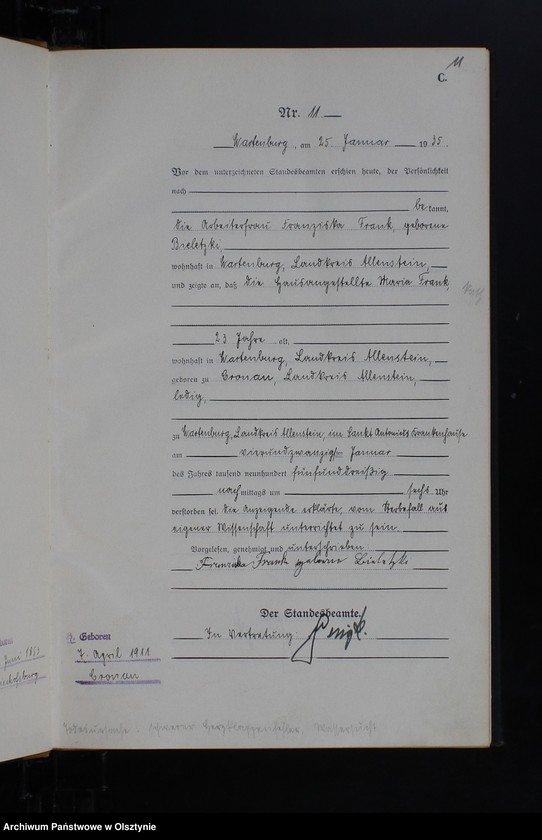 11
C.
Nr. 11
Wartenburg, am 25 Januar 1935.
Vor dem unterzeichneten Standesbeamten erschien heute, der Persönlichkeit
nach
bekannt,
die Arbeiterfrau Franziska Frank, geborene
Bieletzki,
wohnhaft in Wartenburg, Landkreis Allenstein,
und zeigte an, daß die Hausangestellte Maria Frank,
23 Jahre alt,
wohnhaft in Wartenburg, Landkreis Allenstein,
geboren zu Cronau, Landkreis Allenstein,
ledig,
zu Wartenburg, Landkreis Allenstein, im Sankt Antonius Krankenhause
am vierundzwanzigsten Januar
des Jahres tausend neunhundert fünfunddreißig
nachmittags um sechs Uhr
verstorben sei. Die Anzeigende erklärte, vom Sterbefall aus
eigener Wissenschaft unterrichtet zu sein.
Vorgelesen, genehmigt und unterschrieben
Franziska Frank geborene Bieletzki
Der Standesbeamte.
In Vertretung:
Geboren
7. April 1911
Cronau
Todesursache: schwerer Herzklappenfehler. Wassersucht
Juni 1853
Bischofsburg
Archiwum Państwowe w Olsztynie